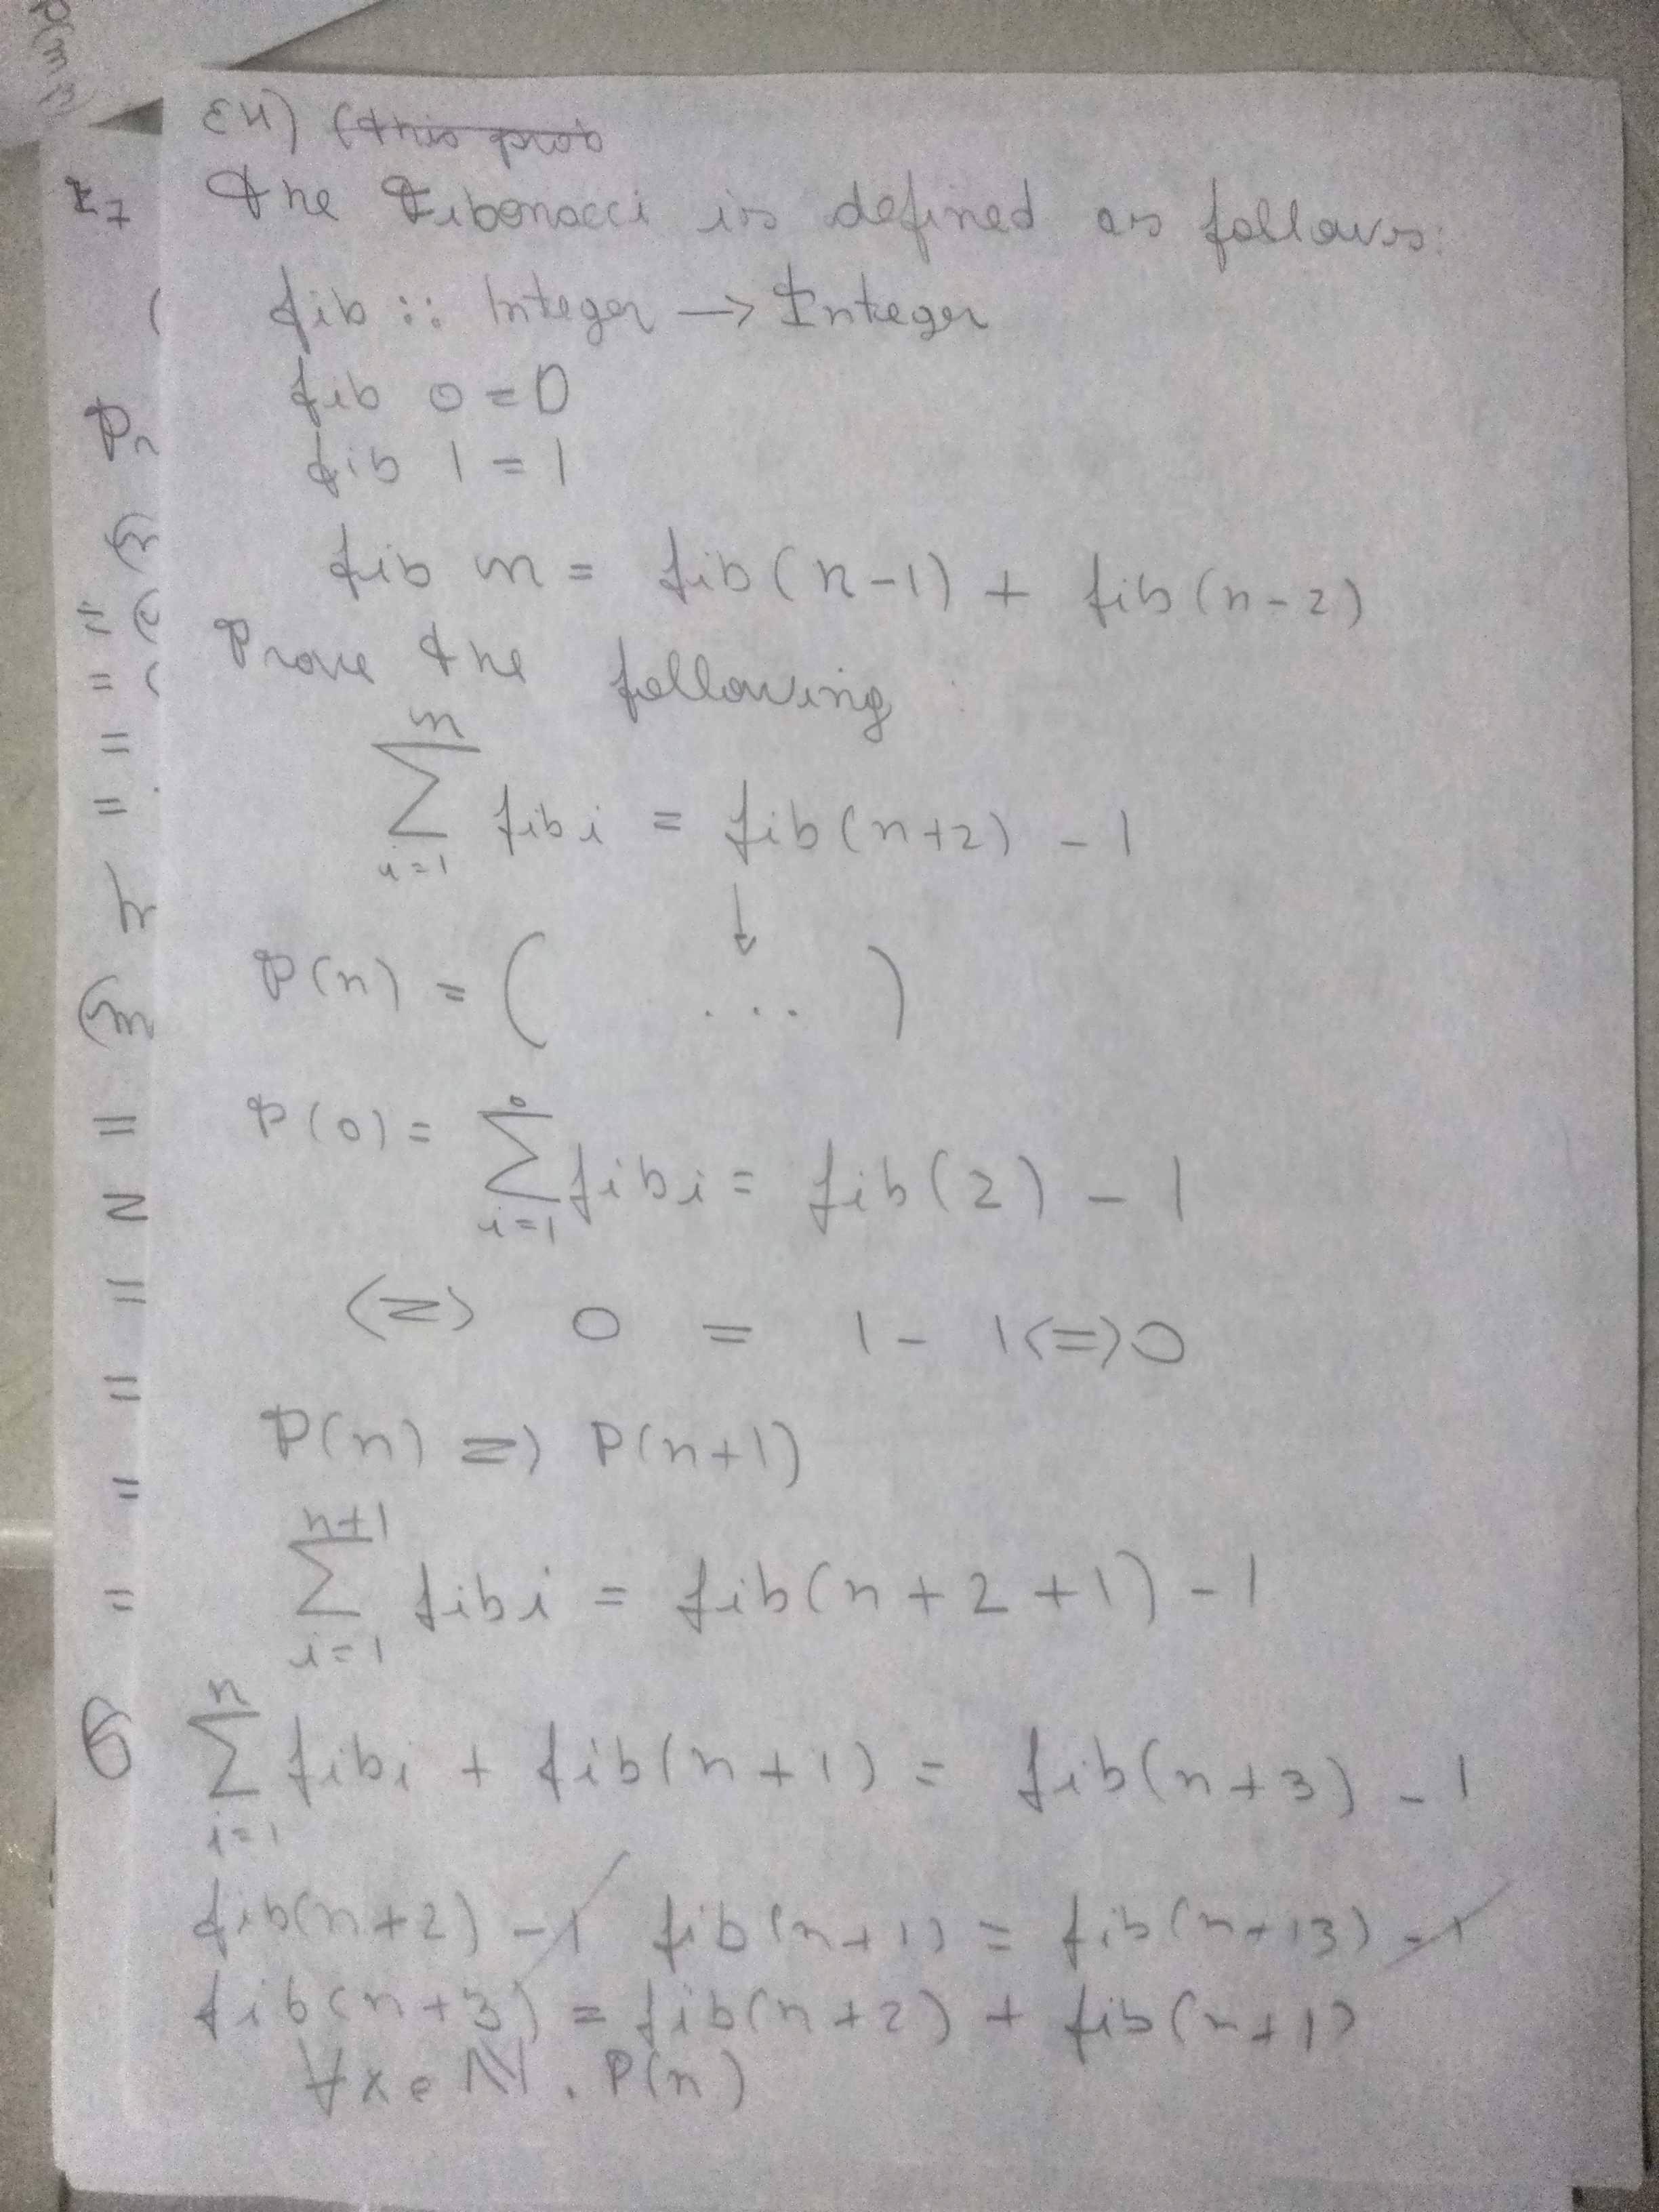 E4) (this prob
The Fibonacci is defined as follows:
fib :: Integer → Integer
fib 0 = 0
fib 1 = 1
fib n = fib(n-1) + fib(n-2)
Prove the following
n
∑ fib i = fib(n+2) - 1
i=1
↓
P(n) = ( ... )
0
P(0) = ∑ fib i = fib(2) - 1
i=1
<=> 0 = 1 - 1 <=> 0
P(n) => P(n+1)
n+1
∑ fib i = fib(n+2+1) - 1
i=1
n
∑ fib i + fib(n+1) = fib(n+3) - 1
i=1
fib(n+2) - 1 fib(n+1) = fib(n+13) - 1
fib(n+3) = fib(n+2) + fib(n+1)
∀x ∈ N . P(n)